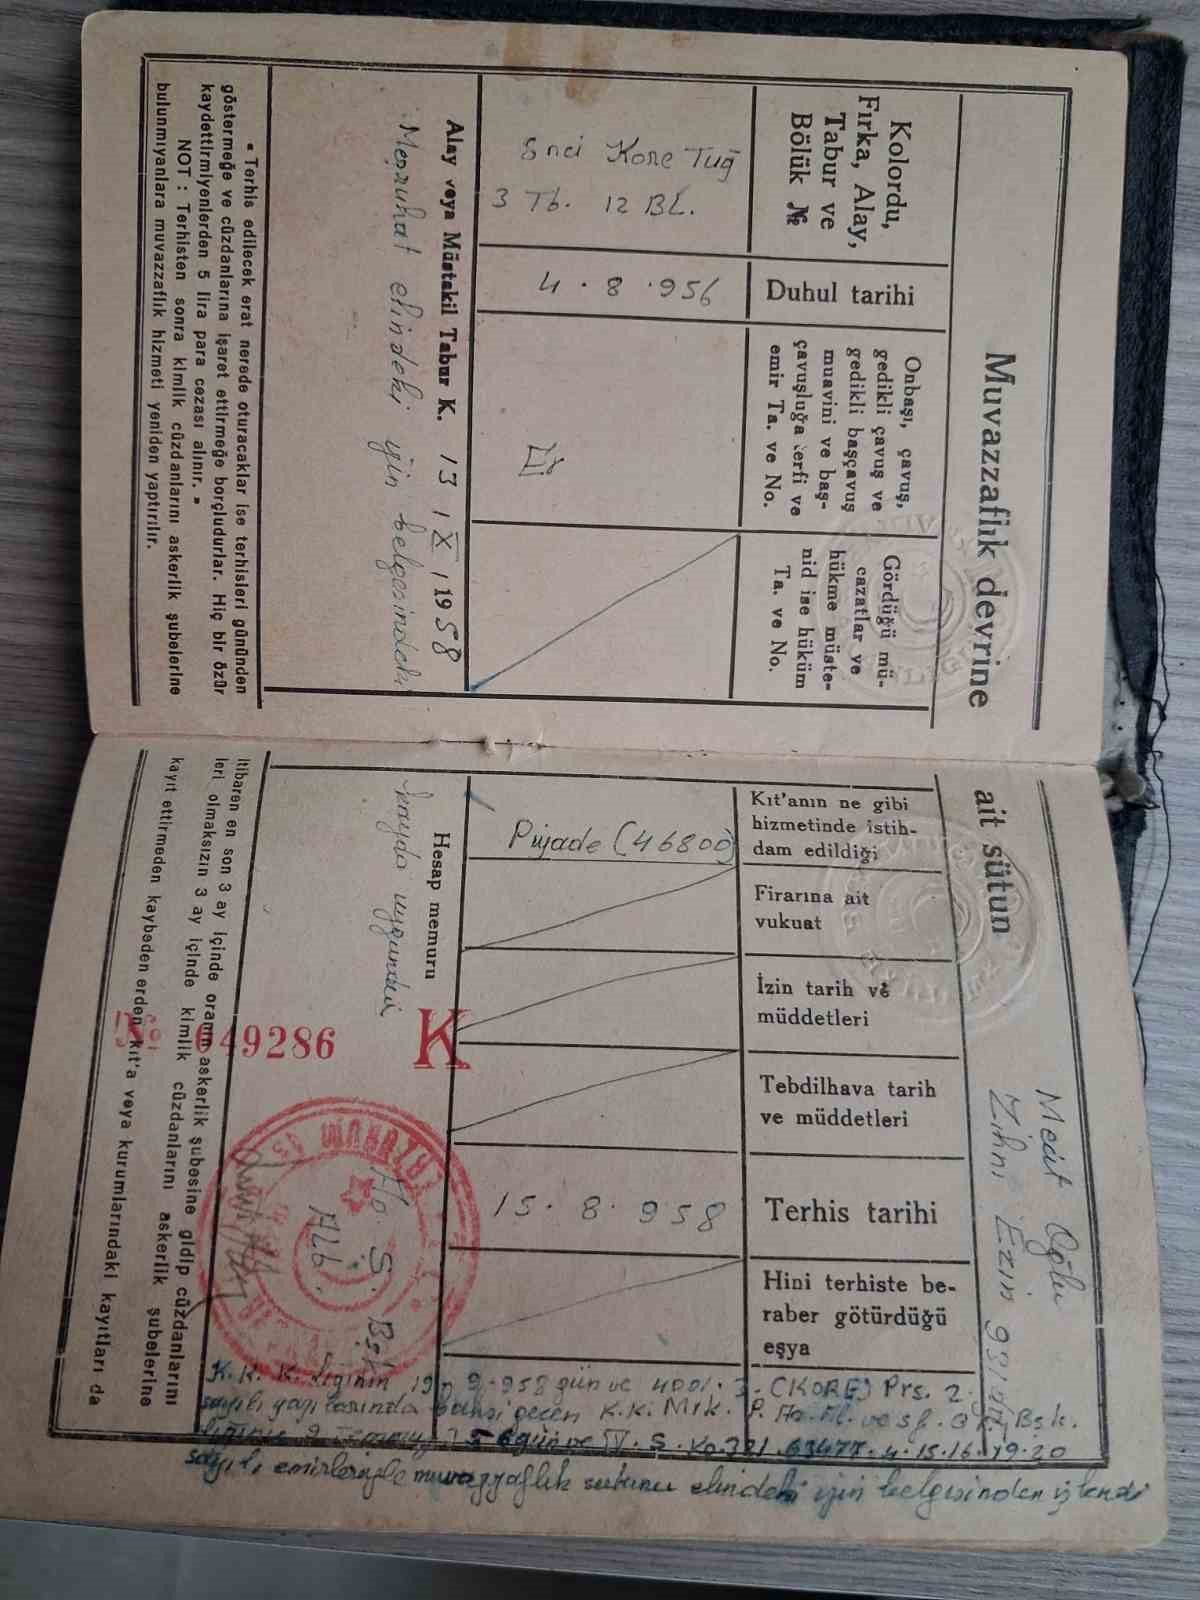 Muvazzaflık devrine
ait sütun
Mecit Oğlu
Zihni Ezin 931
Kolordu,
Fırka, Alay,
Tabur ve
Bölük №
Duhul tarihi
Onbaşı, çavuş,
gedikli çavuş ve
gedikli başçavuş
muavini ve baş-
çavuşluğa terfi ve
emir Ta. ve No.
Gördüğü mü-
cazatlar ve
hükme müste-
nid ise hüküm
Ta. ve No.
Kıt'anın ne gibi
hizmetinde istih-
dam edildiği
Firarına ait
vukuat
İzin tarih ve
müddetleri
Tebdilhava tarih
ve müddetleri
Terhis tarihi
Hini terhiste be-
raber götürdüğü
eşya
5nci Kore Tuğ
3 Tb. 12 BL.
4 . 8 . 956
Er
Piyade (46800)
15 . 8 . 958
Alay veya Müstakil Tabur K. 13 / X / 1958
Meşruhat elindeki için belgesindeki
Hesap memuru
kayda uygundur
K
№ 049286
As. Ş. Bşk.
Alb.
K.K.K.lığının 19 9.958 gün ve 4001.3-(KORE) Prs. 2.
sayılı yazılarında bahsi geçen K.K. Mrk.
sayılı emirleriyle muvazzaflık sutunu elindeki için belgesinden işlendi
« Terhis edilecek erat nerede oturacaklar ise terhisleri gününden itibaren en son 3 ay içinde oranın askerlik şubesine gidip cüzdanlarını
göstermeğe ve cüzdanlarına işaret ettirmeğe borçludurlar. Hiç bir özürleri olmaksızın 3 ay içinde kimlik cüzdanlarını askerlik şubelerine
kaydettirmiyenlerden 5 lira para cezası alınır. »
NOT : Terhisten sonra kimlik cüzdanlarını askerlik şubelerine kayıt ettirmeden kaybeden erden kıt'a veya kurumlarındaki kayıtları da
bulunmıyanlara muvazzaflık hizmeti yeniden yaptırılır.